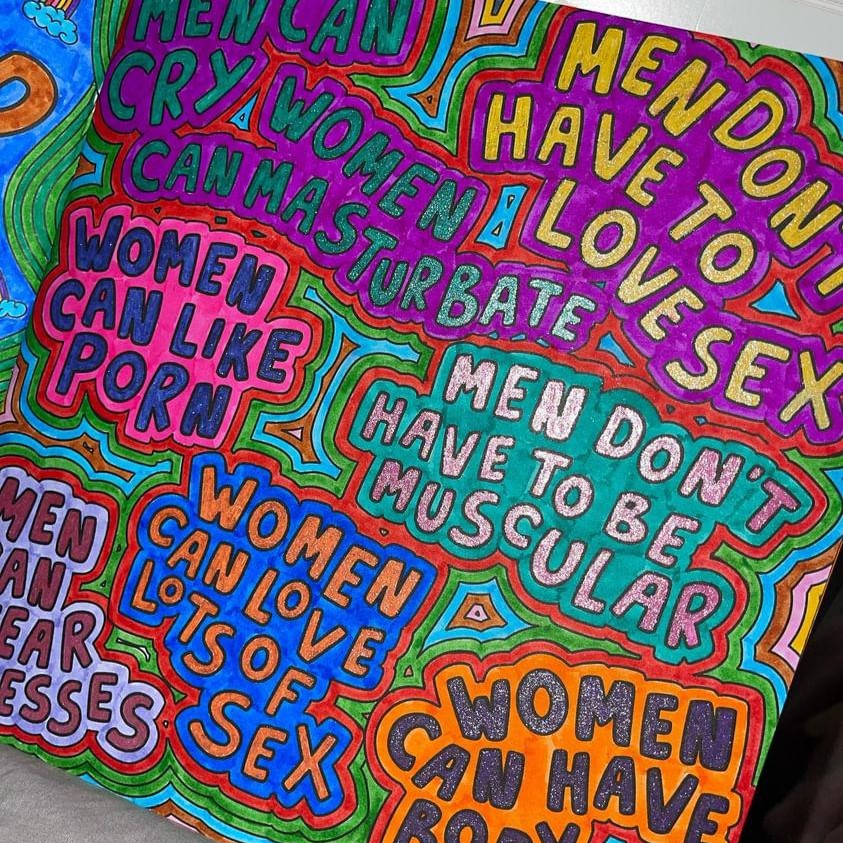 MEN CAN
CRY
WOMEN
CAN MASTURBATE
MEN DON'T
HAVE TO
LOVE SEX
WOMEN
CAN LIKE
PORN
MEN DON'T
HAVE TO BE
MUSCULAR
MEN
CAN
WEAR
DRESSES
WOMEN
CAN LOVE
LOTS OF
SEX
WOMEN
CAN HAVE
BODY